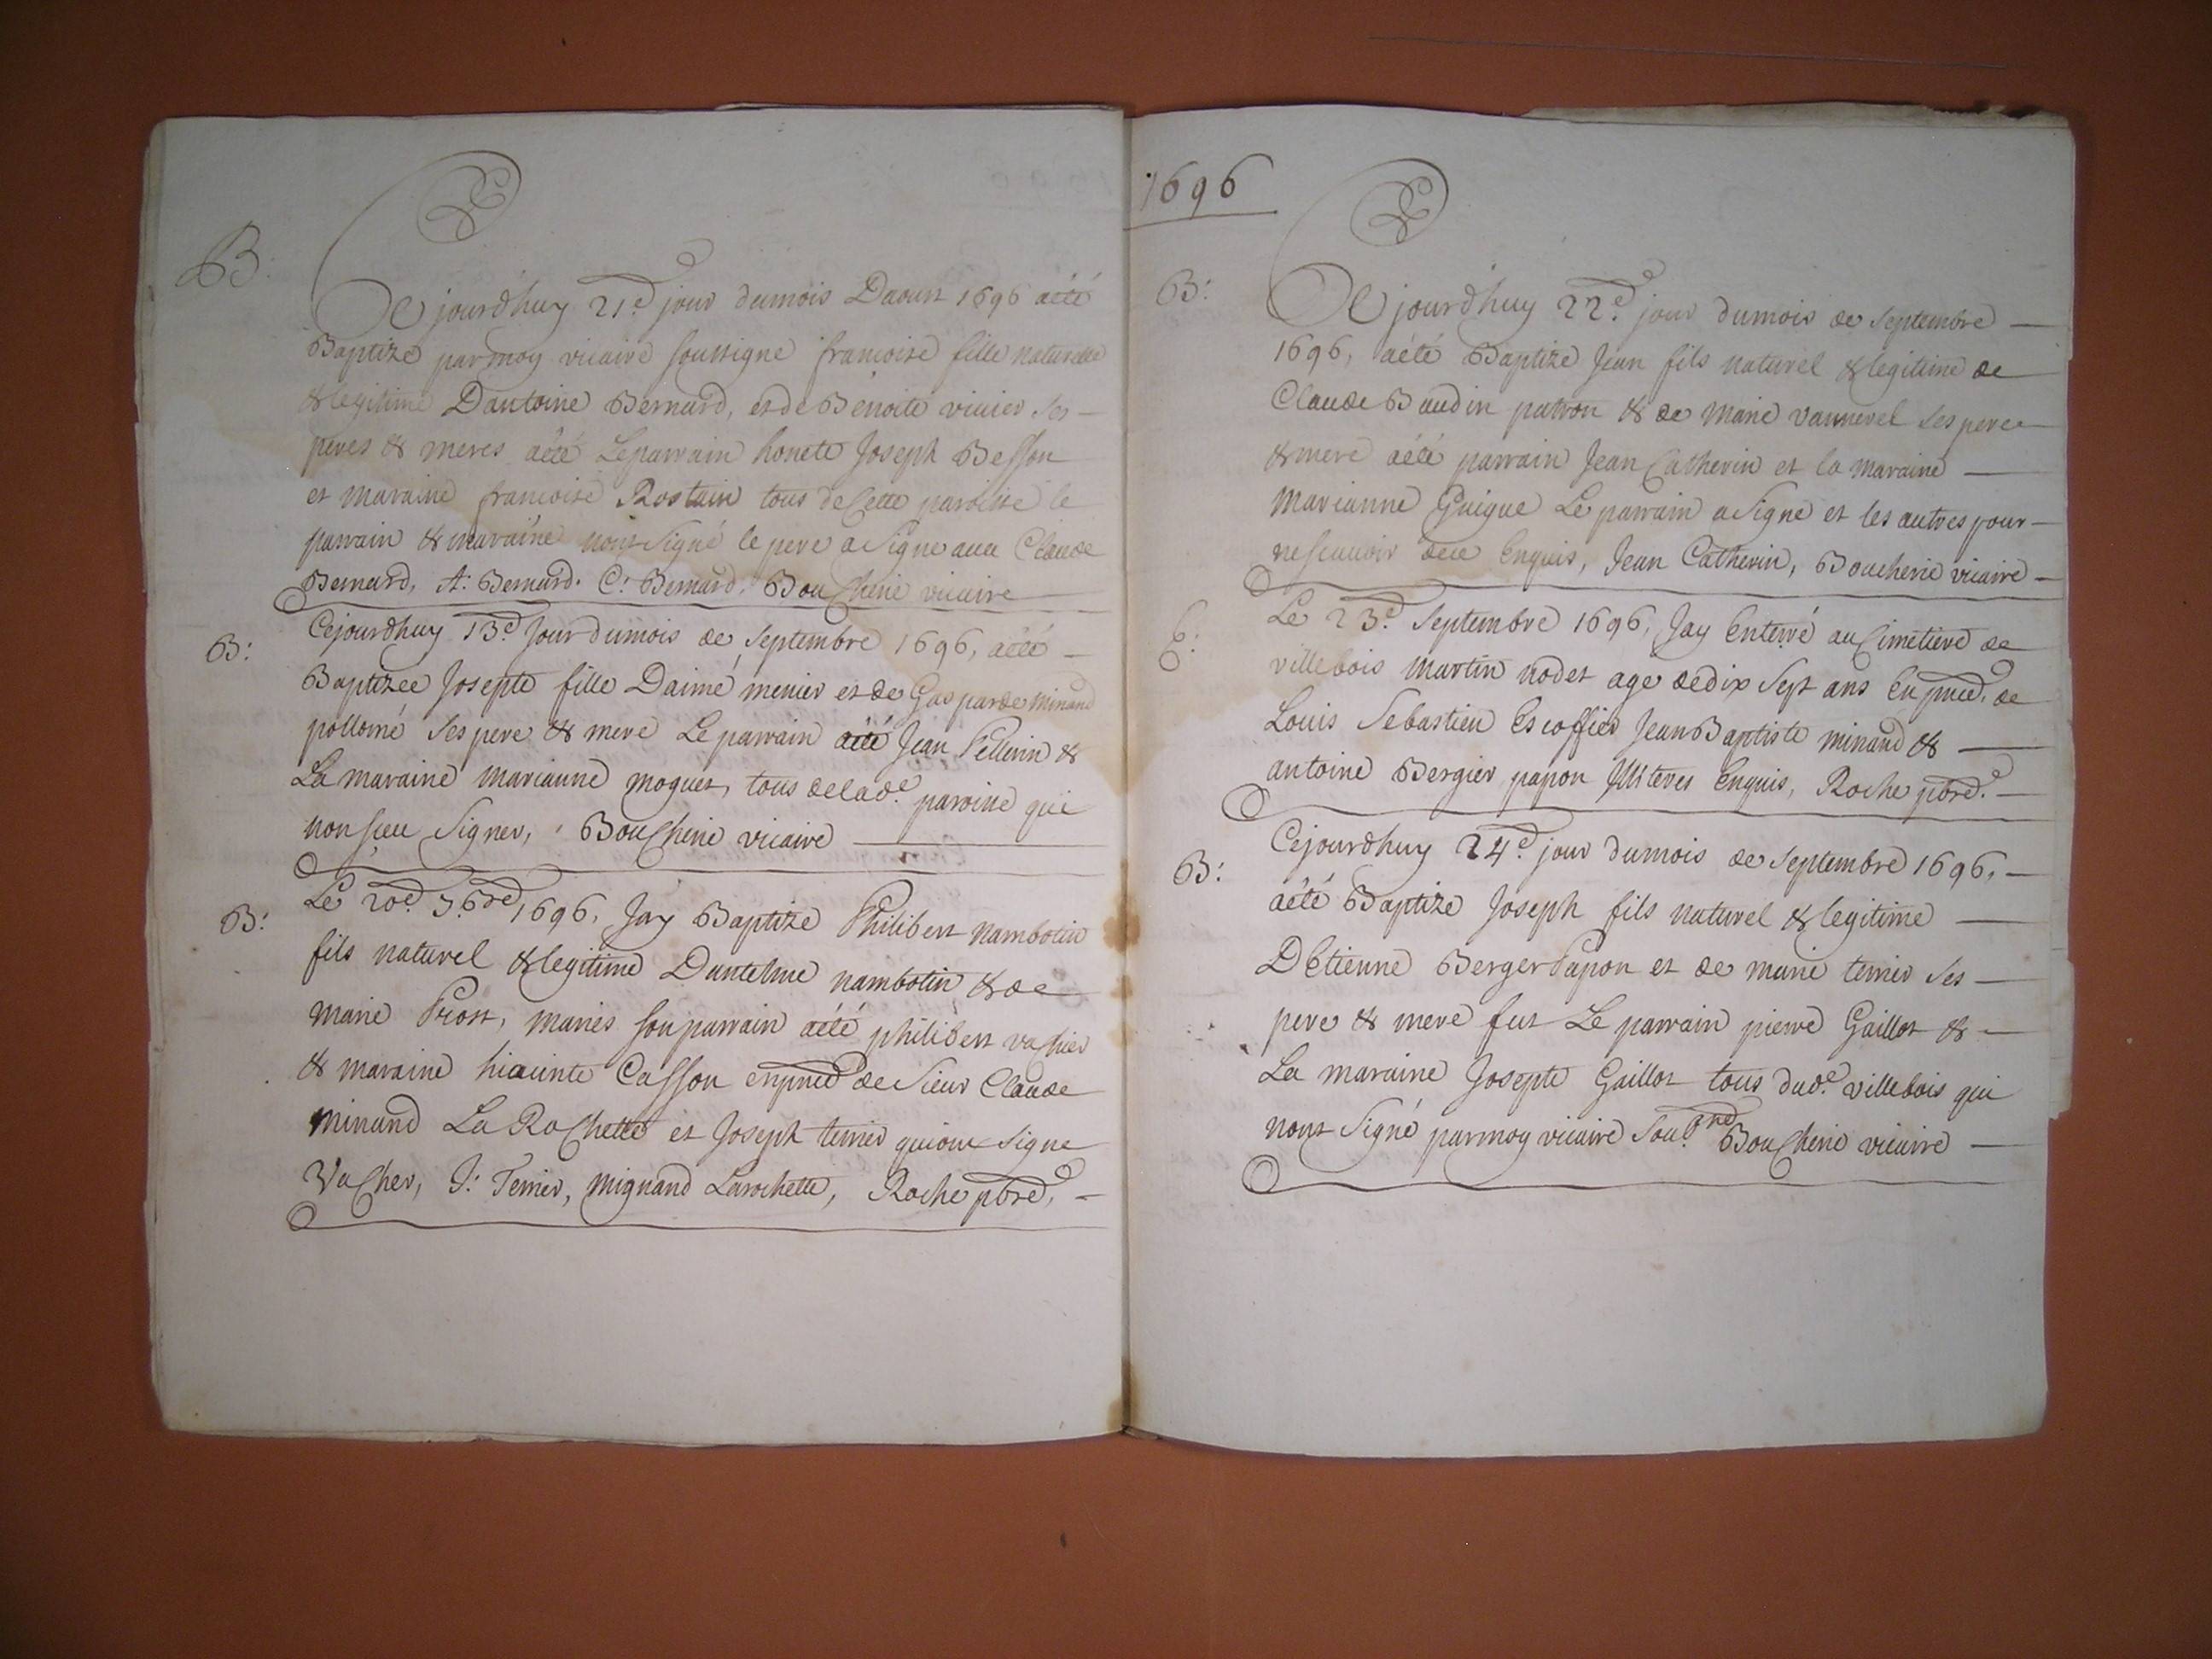 B:
Cejourdhuy 21e jour dumois Daoust 1696 aété
Baptize parmoy vicaire soussigné francoise fille naturelle
& legitime Dantoine Bernard, et de Benoite vicier ses
peres & meres aété Leparrain honete Joseph Besson
et maraine francoise Rostain tous decette paroisse le
parrain & maraine nont signé le pere a signe avec Claude
Bernard, A: Bernard. C: Bernard. Boucherie vicaire
B:
Cejourdhuy 13e Jour dumois de septembre 1696, aété
Baptizée Josepte fille Daimé menier et de Gasparde minand
ses pere & mere Le parrain aété Jean Pellerin &
La maraine marianne moguet, tous delade. paroisse qui
non sceu signer, Boucherie vicaire
B:
Le 20e 7bre 1696, Jay Baptize Philibert nambotin
fils naturel & legitime Dantelme nambotin & de
marie Prost, mariés son parrain aété philibert vachier
& maraine hiacinte Casson enpnce de sieur Claude
minand La Rochette et Joseph terrier quiont signe
Vacher, J: Terrier, mignand Larochette, Roche pbre,
1696
B:
Cejourdhuy 22e jour dumois de septembre
1696, aété Baptize Jean fils naturel & legitime de
Claude Baudin patron & de marie vannerel ses pere
& mere aété parrain Jean Catherin et la maraine
marianne Guigue Le parrain a signe et les autres pour
nescavoir dece Enquis, Jean Catherin, Boucherie vicaire
E:
Le 23e septembre 1696, Jay Enterré au cimetiere de
villebois martin nodet age dedix sept ans En pnce. de
Louis Sebastien Escoffier Jean Baptiste minand &
antoine Bergier papon Illiteres Enquis, Roche pbre.
B:
Cejourdhuy 24e jour dumois de septembre 1696,
aété Baptize Joseph fils naturel & legitime
DEtienne Berger Papon et de marie terrier ses
pere & mere fut Le parrain pierre Gaillot &
La maraine Josepte Gaillot tous dude. villebois qui
nont signé parmoy vicaire sou.gné Boucherie vicaire